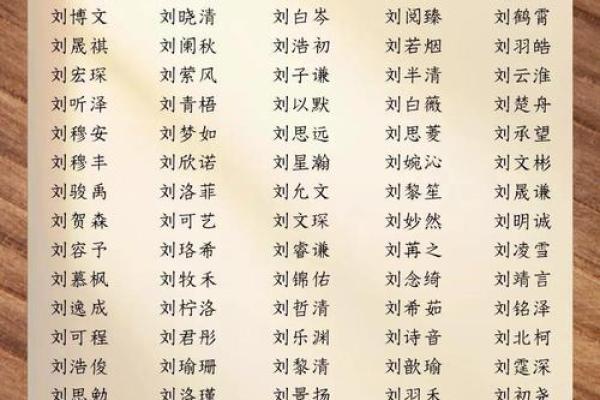 刘博文 刘晓清 刘白岑 刘阅臻 刘鹤霄
刘晟祺 刘阑秋 刘浩初 刘若烟 刘羽皓
刘宏琛 刘萦风 刘子谦 刘半清 刘云淮
刘听泽 刘青梧 刘以默 刘白薇 刘楚舟
刘穆安 刘梦如 刘思远 刘思菱 刘承望
刘穆丰 刘欣诺 刘星瀚 刘婉沁 刘文彬
刘骏禹 刘洛菲 刘允文 刘黎笙 刘晟谦
刘贺森 刘可艺 刘文琛 刘妙然 刘明诚
刘容予 刘珞希 刘睿谦 刘苒之 刘凌雪
刘慕枫 刘牧禾 刘锦佑 刘念绮 刘靖言
刘逸成 刘柠洛 刘哲清 刘希茹 刘铭泽
刘可程 刘君彤 刘乐渊 刘诗音 刘北柯
刘浩俊 刘瑜珊 刘黎清 刘歆瑜 刘霆深
刘思勉 刘洛瑾 刘景扬 刘羽禾 刘初尧